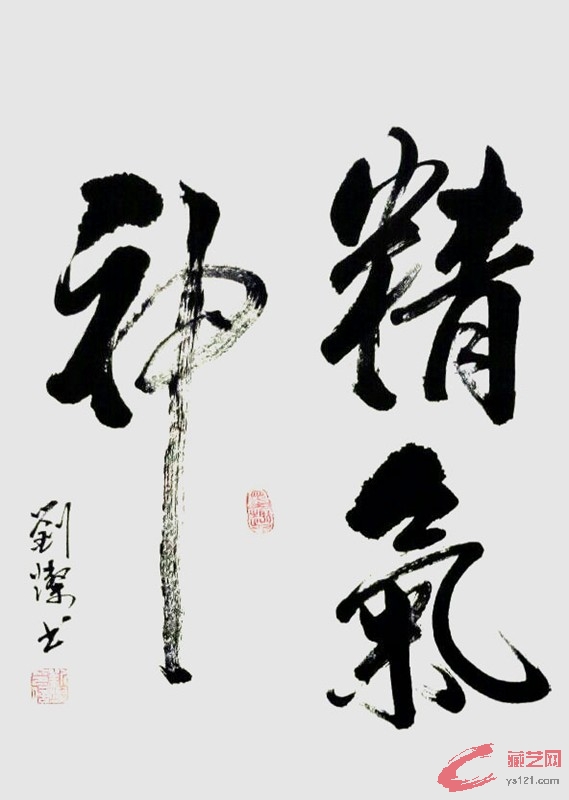 精氣
神
劉潔书
藏艺网
ys121.com